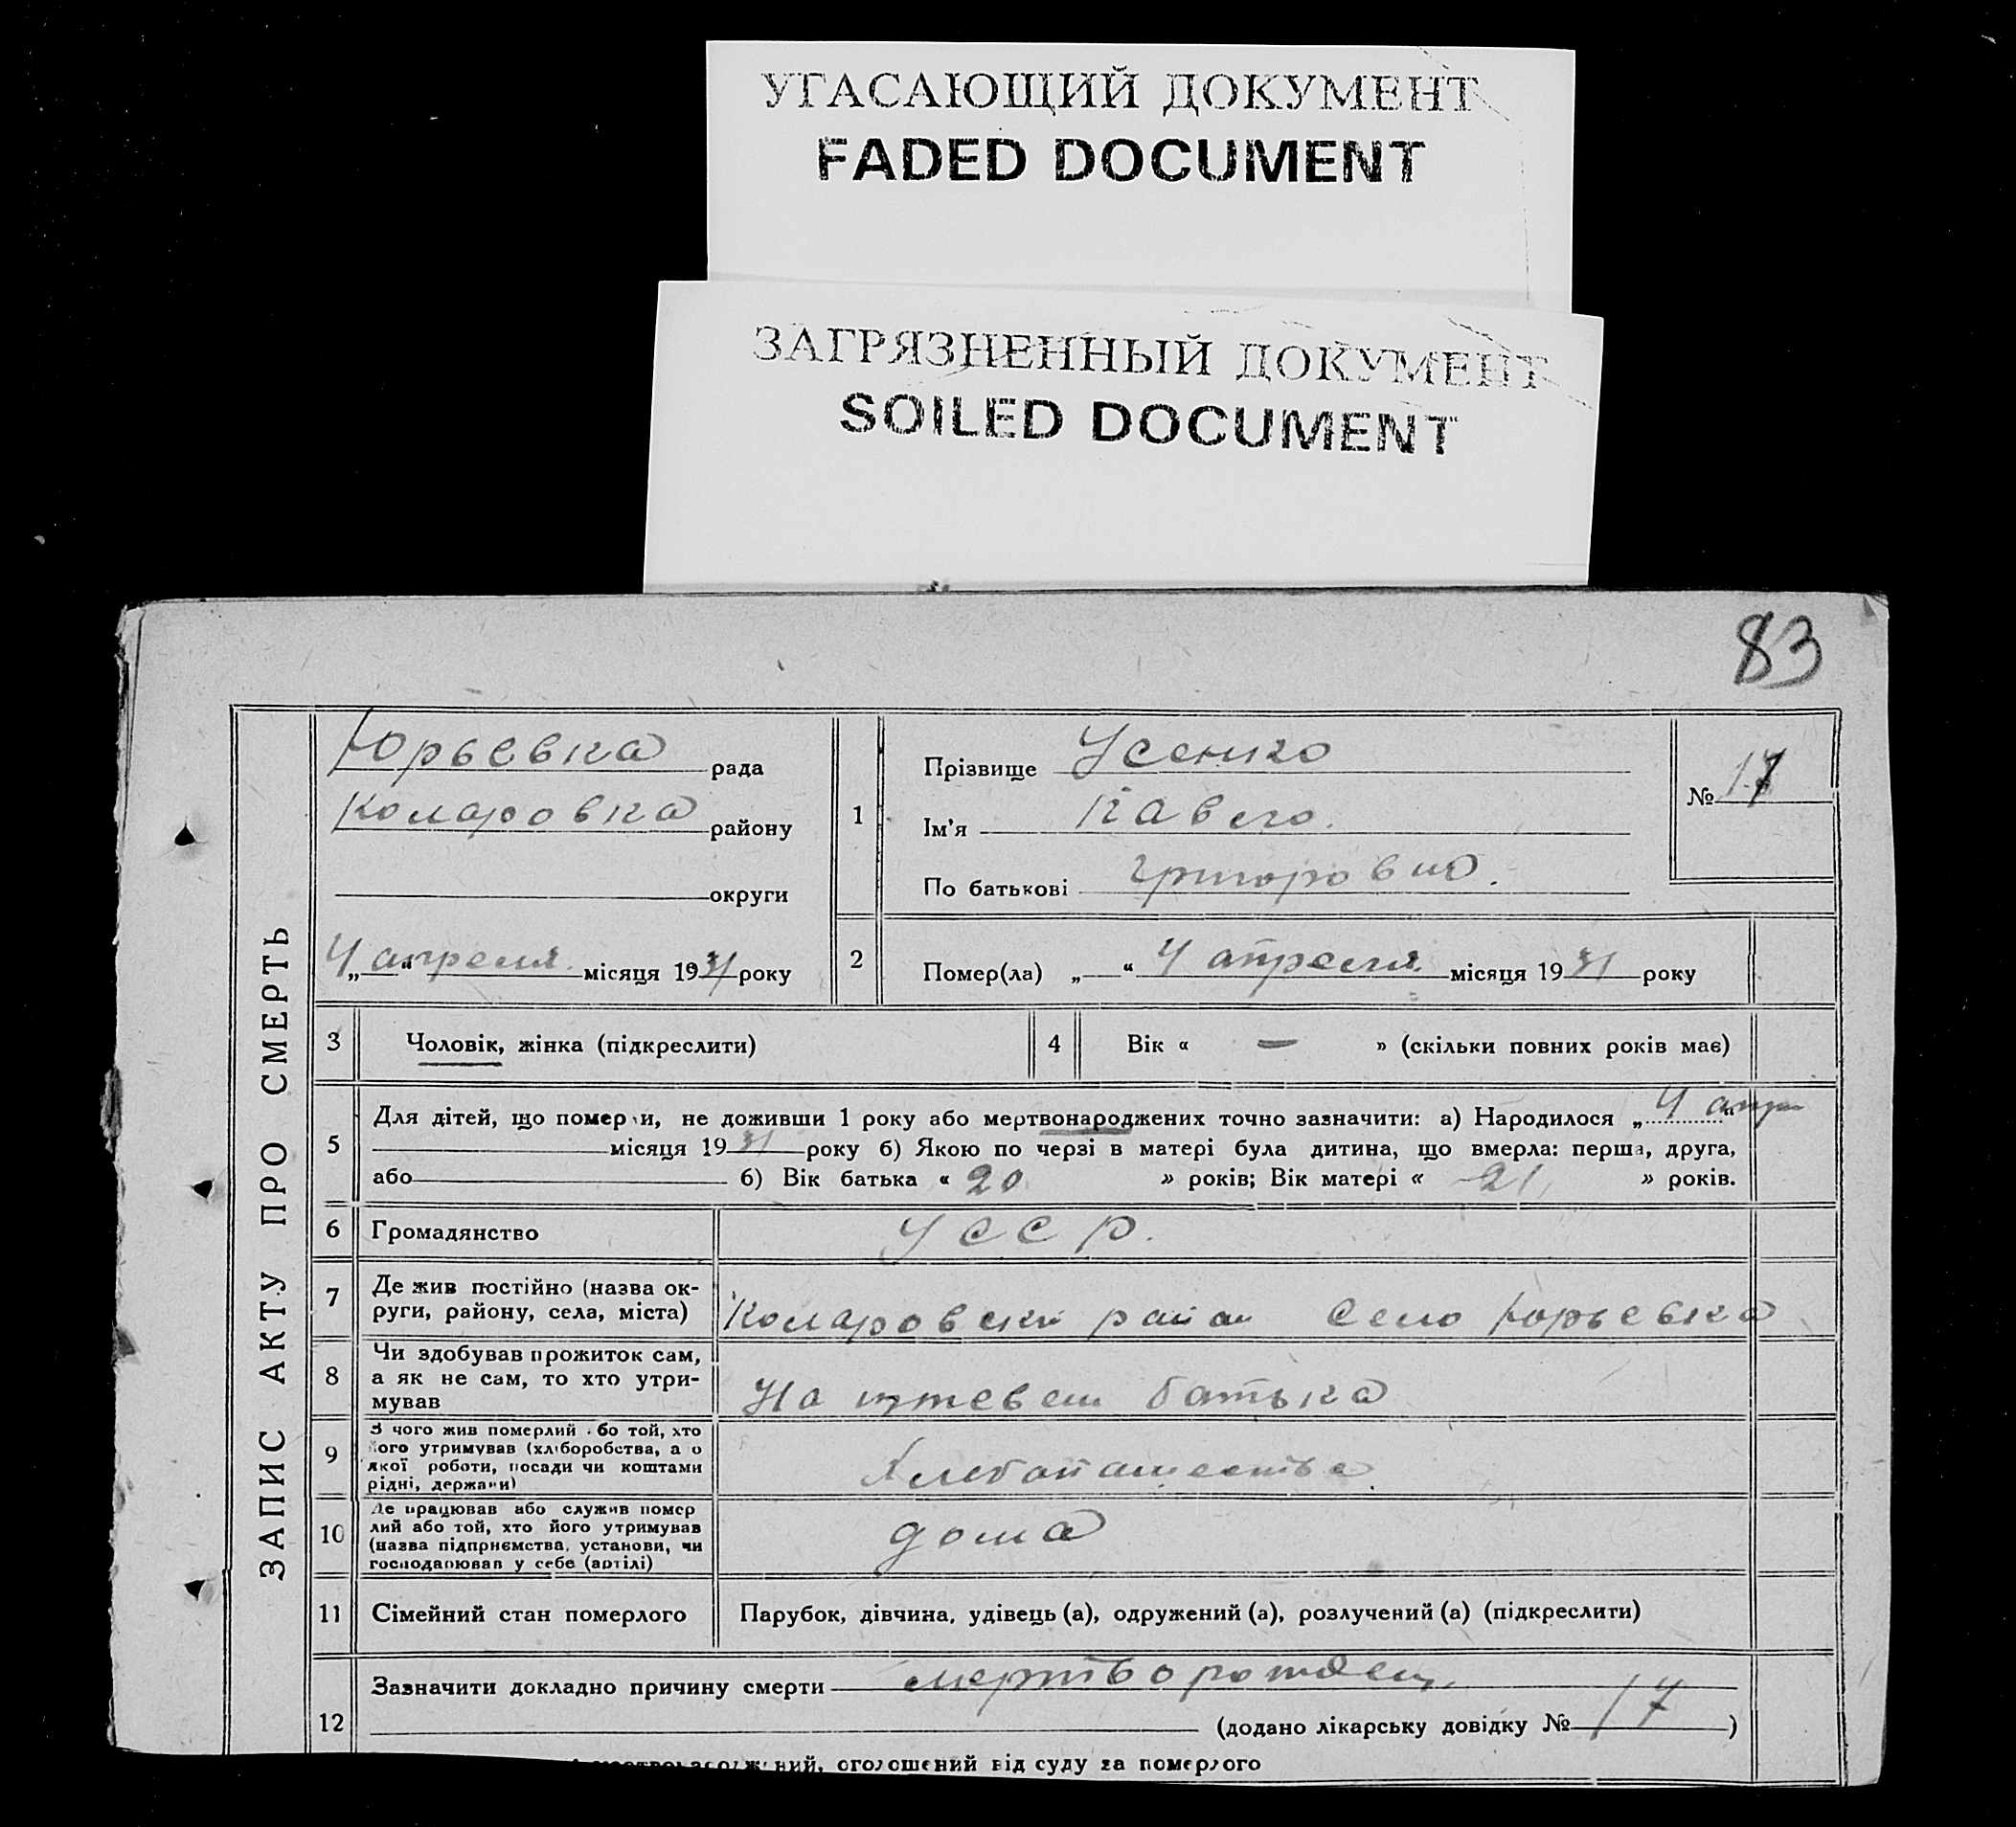 УГАСАЮЩИЙ ДОКУМЕНТ
FADED DOCUMENT
ЗАГРЯЗНЕННЫЙ ДОКУМЕНТ
SOILED DOCUMENT
83
ЗАПИС АКТУ ПРО СМЕРТЬ
Юрьевка рада
Комаровка району
округи
„4“ апреля місяця 1931 року
1
Прізвище Усенко
Ім'я Павло.
По батькові Григорович.
№ 17
2
Помер(ла) „ “ 4 апреля місяця 1931 року
3 Чоловік, жінка (підкреслити)
4 Вік « — » (скільки повних років має)
5
Для дітей, що померли, не доживши 1 року або мертвонароджених точно зазначити: а) Народилося „ 4 апр “
місяця 1931 року б) Якою по черзі в матері була дитина, що вмерла: перша, друга,
або б) Вік батька « 20 » років; Вік матері « 21 » років.
6 Громадянство УССР.
7 Де жив постійно (назва ок-
руги, району, села, міста) Комаровски район Село Юрьевка
8 Чи здобував прожиток сам,
а як не сам, то хто утри-
мував На батька
9 З чого жив померлий або той, хто
його утримував (хліборобства, а о
якої роботи, посади чи коштами
рідні, держави) Хлебопашества
10 Де працював або служив помер
лий або той, хто його утримував
(назва підприємства, установи, чи
господарював у себе (артілі) дома
11 Сімейний стан померлого Парубок, дівчина, удівець (а), одружений (а), розлучений (а) (підкреслити)
12 Зазначити докладно причину смерти мертворожден.
(додано лікарську довідку № 17 )
ний, оголошений від суду за померлого